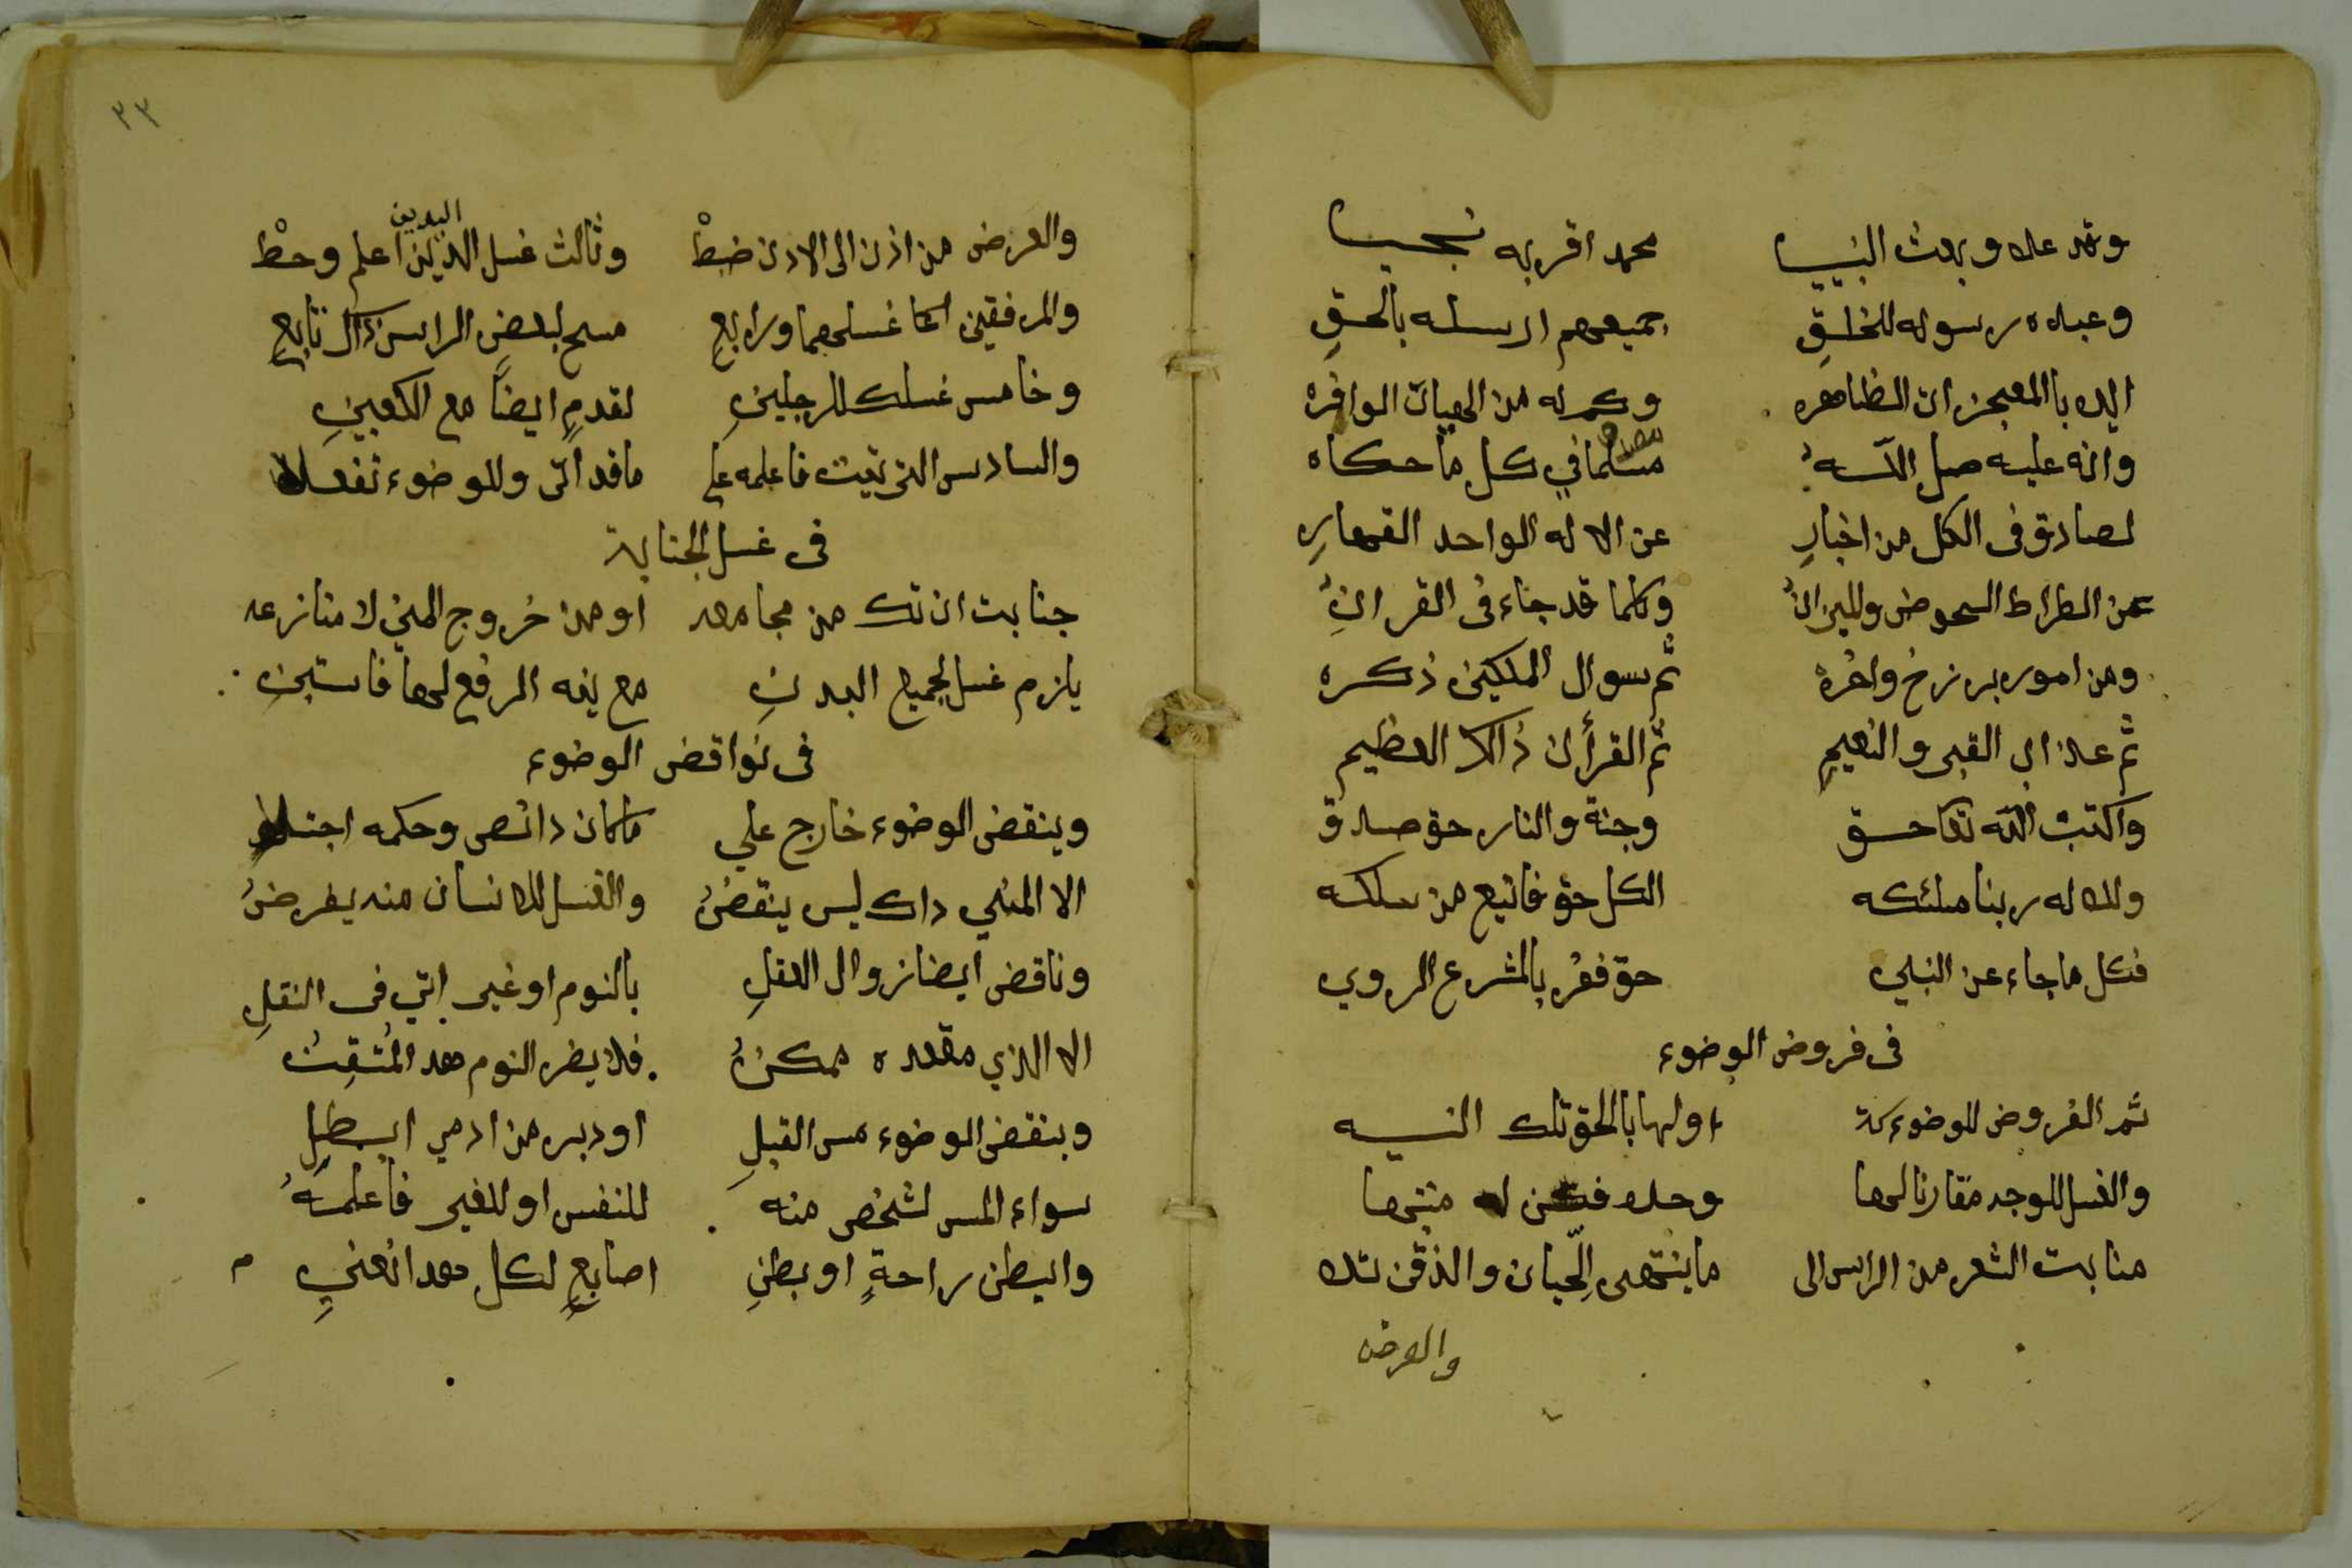 وقد علا وبعث النبيا محمد اقر به نجيبا
وعبده رسوله للخلقِ جميعهم ارسله بالحقِ
ايده بالمعجزات الظاهره وكم له من الهبات الوافره
وانه عليه صلى اللّه مسلما في كل ما حكاه
لصادق فى الكل من اخبارِ عن الاله الواحد القهارِ
عن الطراط الحوض والميزان وكلما قد جاء فى القرانِ
ومن اموره برزخ واخره ثم سوال الملكين ذكره
ثم عذاب القبر والنعيمِ ثم القرأن ذالك العظيم
واكتب اللّه تعا حق وجنة والنار حق صدق
وللاله ربنا ملئكه الكل حق فاتبع من سلكه
فكل ما جاء عن النبي حق فقر بالشرع الروي
فى فروض الوضوء
ثم الفروض للوضوء اولها بالحق تلك النيه
والغسل للوجه مقارنا لها وحده فكن له منتبها
منابت الشعر من الراس الى ما ينتهى اللّحيان والذقن تلا
والعرض
٣٣
والعرض من اذن الى الاذن ضبطْ وثالث غسل اليدين اعلم وحطْ
اليدين
والمرفقين غسلهما ورابع مسح لبعض الراس تابع
وخامس غسلك للرجلينِ لقدمٍ ايضاً مع الكعبينِ
والسادس الترتيب فاعلمه على ما قد اتى وللوضوء تفعلا
فى غسل الجنابة
جنابت ان تك من مجامعه او من خروج المني لا منازعه
يلزم غسل لجميع البدنِ مع نيه الرفع لها فاستبنِ
فى نواقض الوضوء
وينقض الوضوء خارج علي ما كان وحكمه اجتلا
الا المني داك ليس ينقضُ والغسل للانسان منه يفرضُ
وناقض ايضا زوال العقلِ بالنوم او غير اتي فى النقلِ
الا الذي مقعده ممكنُ فلا يضر النوم هد المتقنُ
وينقض الوضوء مس القبلِ او دبر من ادمي ابطلِ
سواء المس لشخص منه للنفس او للغير فاعلمنهُ
والبطن راحةٍ او بطنِ اصابعٍ لكل هدا نعنيِ